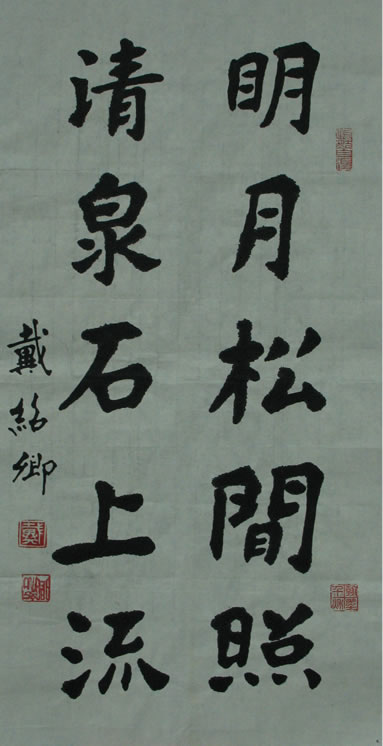 明月松間照
清泉石上流
戴紹卿